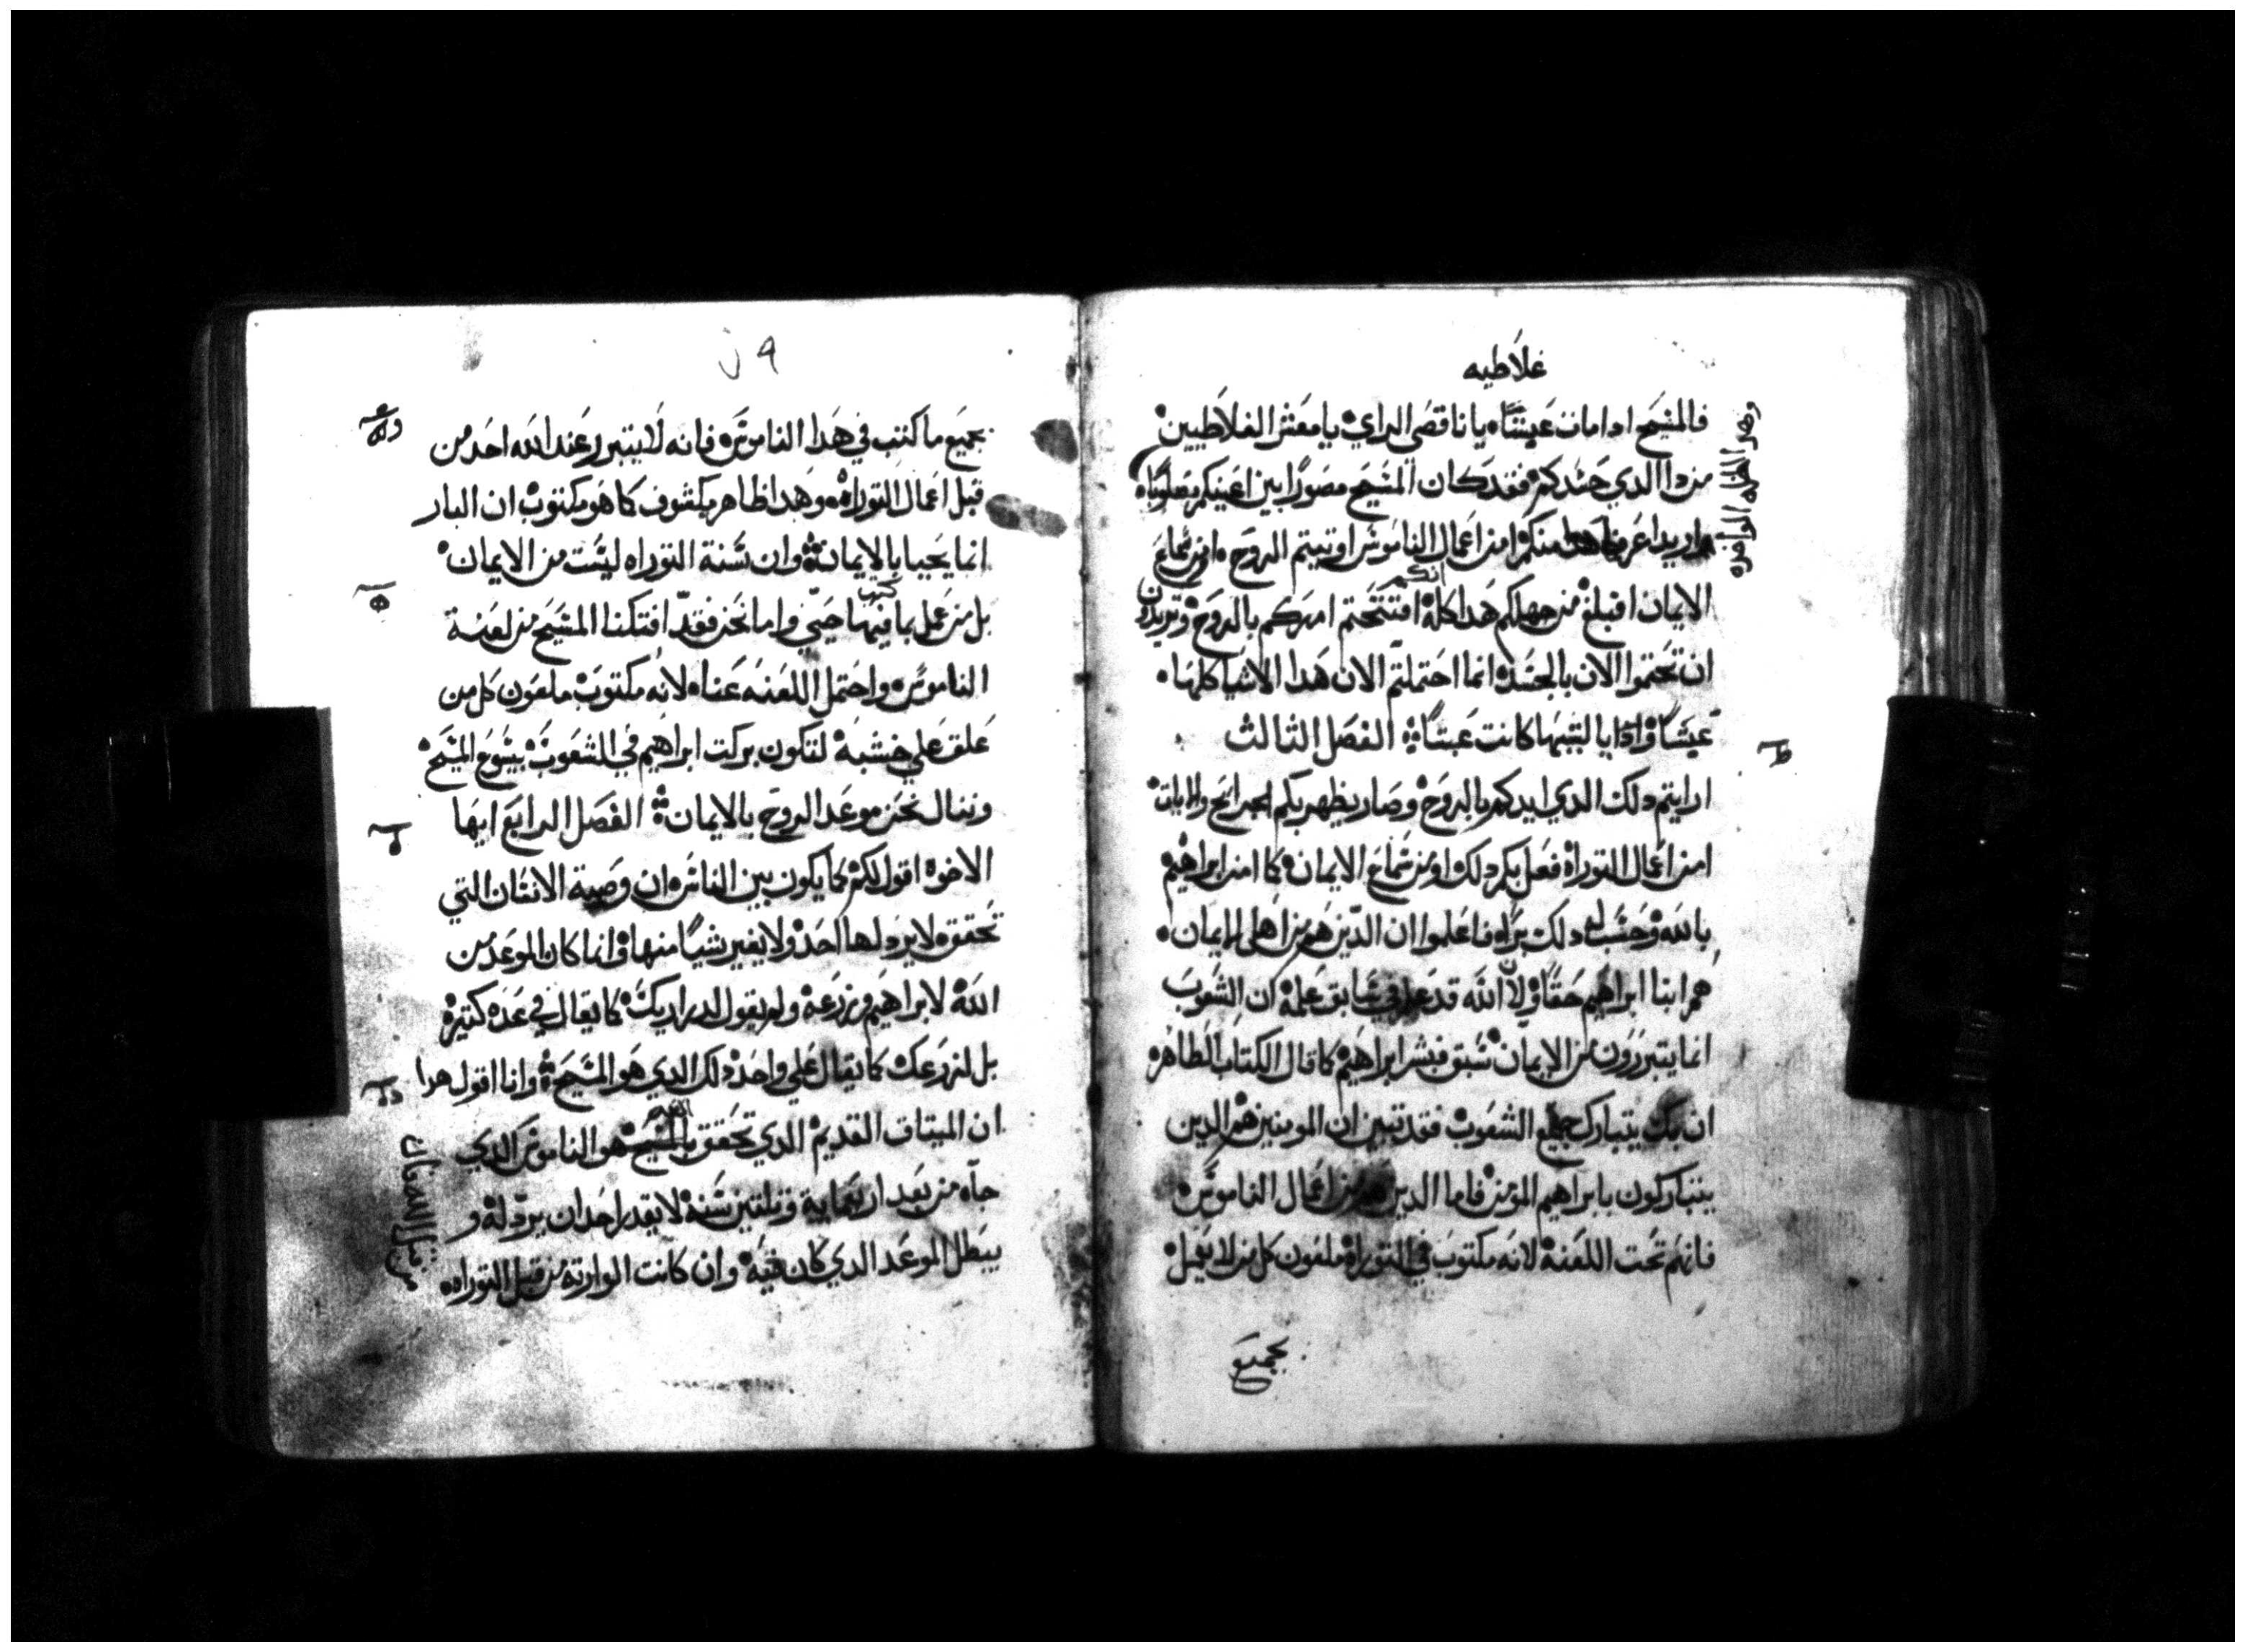 غلاطيه
فالمسيح ادا مات عبثاه يا ناقصي الراي يا معشر الغلاطيين
من دا الدي حسدكم فقد كان المسيح مصورا بين اعينكم مصلوباه
اريد اعرف هدا منكم امن اعمال الناموس اوتيتم الروح او من سماع
الايمان افبلغ من جهلكم هدا كله انكم افتتحتم امركم بالروح وتريدون
ان تختموا الان بالجسده انما احتملتم الان هدا الاشيا كلها
عبثا وادا يا ليتها كانت عبثا الفصل الثالث
ارايتم دلك الدي ايدكم بالروح وصار يظهر بكم الجرايح والايات
امن اعمال التوراه فعل بكم دلك او من سماع الايمان كما امن ابراهيم
بالله وحسب له دلك براه فاعلموا ان الدين هم من اهل الايمان
هم ابنا ابراهيم حقا ولان الله قد علم في سابق علمه ان الشعوب
انما يتبررون من الايمان سبق فبشر ابراهيم كما قال الكتاب الطاهر
ان بك يتبارك جميع الشعوب فقد تبين ان المومنين هم الدين
يتباركون بابراهيم المومن فاما الدين هم من اعمال الناموس
فانهم تحت اللعنه لانه مكتوب في التوراه ملعون كل من لا يعمل
بجميع
بجميع ما كتب في هدا الناموس فانه لا يتبرر عند الله احد من
قبل اعمال التوراه وهدا ظاهر مكشوف كما هو مكتوب ان البار
انما يحيا بالايمان وان سنة التوراه ليست من الايمان
بل من عمل بما كتب فيها حيي واما نحن فقد افتكنا المسيح من لعنة
الناموس واحتمل اللعنه عناه لانه مكتوب ملعون كل من
علق علي خشبه لتكون بركت ابراهيم في الشعوب بيسوع المسيح
وننال نحن موعد الروح بالايمان الفصل الرابع ايها
الاخوه اقول لكم كما يكون بين الناس ان وصية الانسان التي
تحققه لا يردلها احد ولا يغير شيا منها وانما كان الموعد من
الله لابراهيم وزرعه ولم يقول لدراريك كما يقال في عده كتيره
بل لزرعك كما يقال علي واحد دلك الدي هو المسيح وانا اقول هدا
ان الميتاق القديم الدي تحقق بالمسيح هو الناموس الدي
جاه من بعد اربعماية وتلتين سنه لا يقدر احد ان يردله و
يبطل الموعد الدي كان فيه وان كانت الوارتة من قبل التوراه